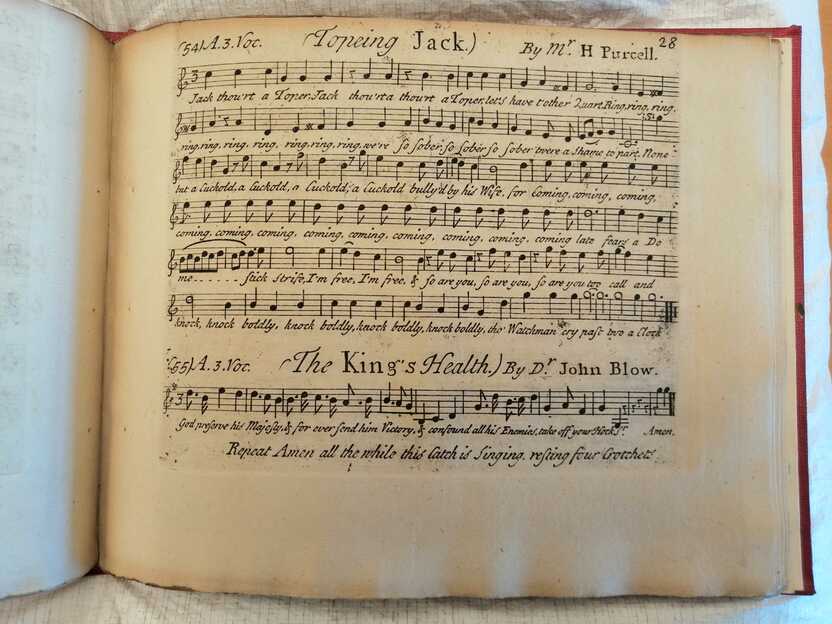 28
(54) A. 3. Voc. (Topeing Jack.) By Mr. H Purcell.
Jack thou'rt a Toper, Jack thou'rt a thou'rt a Toper, let's have t'other Quart, Ring, ring, ring,
ring, ring, ring, ring, ring, ring, ring, we're so sober, so sober so sober twere a shame to part, None
but a Cuckold, a Cuckold, a Cuckold, a Cuckold bully'd by his Wife, for Coming, coming, coming,
coming, coming, coming, coming, coming, coming, coming, coming, coming late fears a Do
me - - - - - - stick strife, I'm free, I'm free, & so are you, so are you, so are you too call and
knock, knock boldly, knock boldly, knock boldly, knock boldly, tho' Watchman cry past two a Clock
(55) A. 3. Voc. (The King's Health.) By Dr. John Blow.
God preserve his Majesty, & for ever send him Victory, & confound all his Enemies, take off your Amen.
Repeat Amen all the while this Catch is Singing, resting four Crotchets